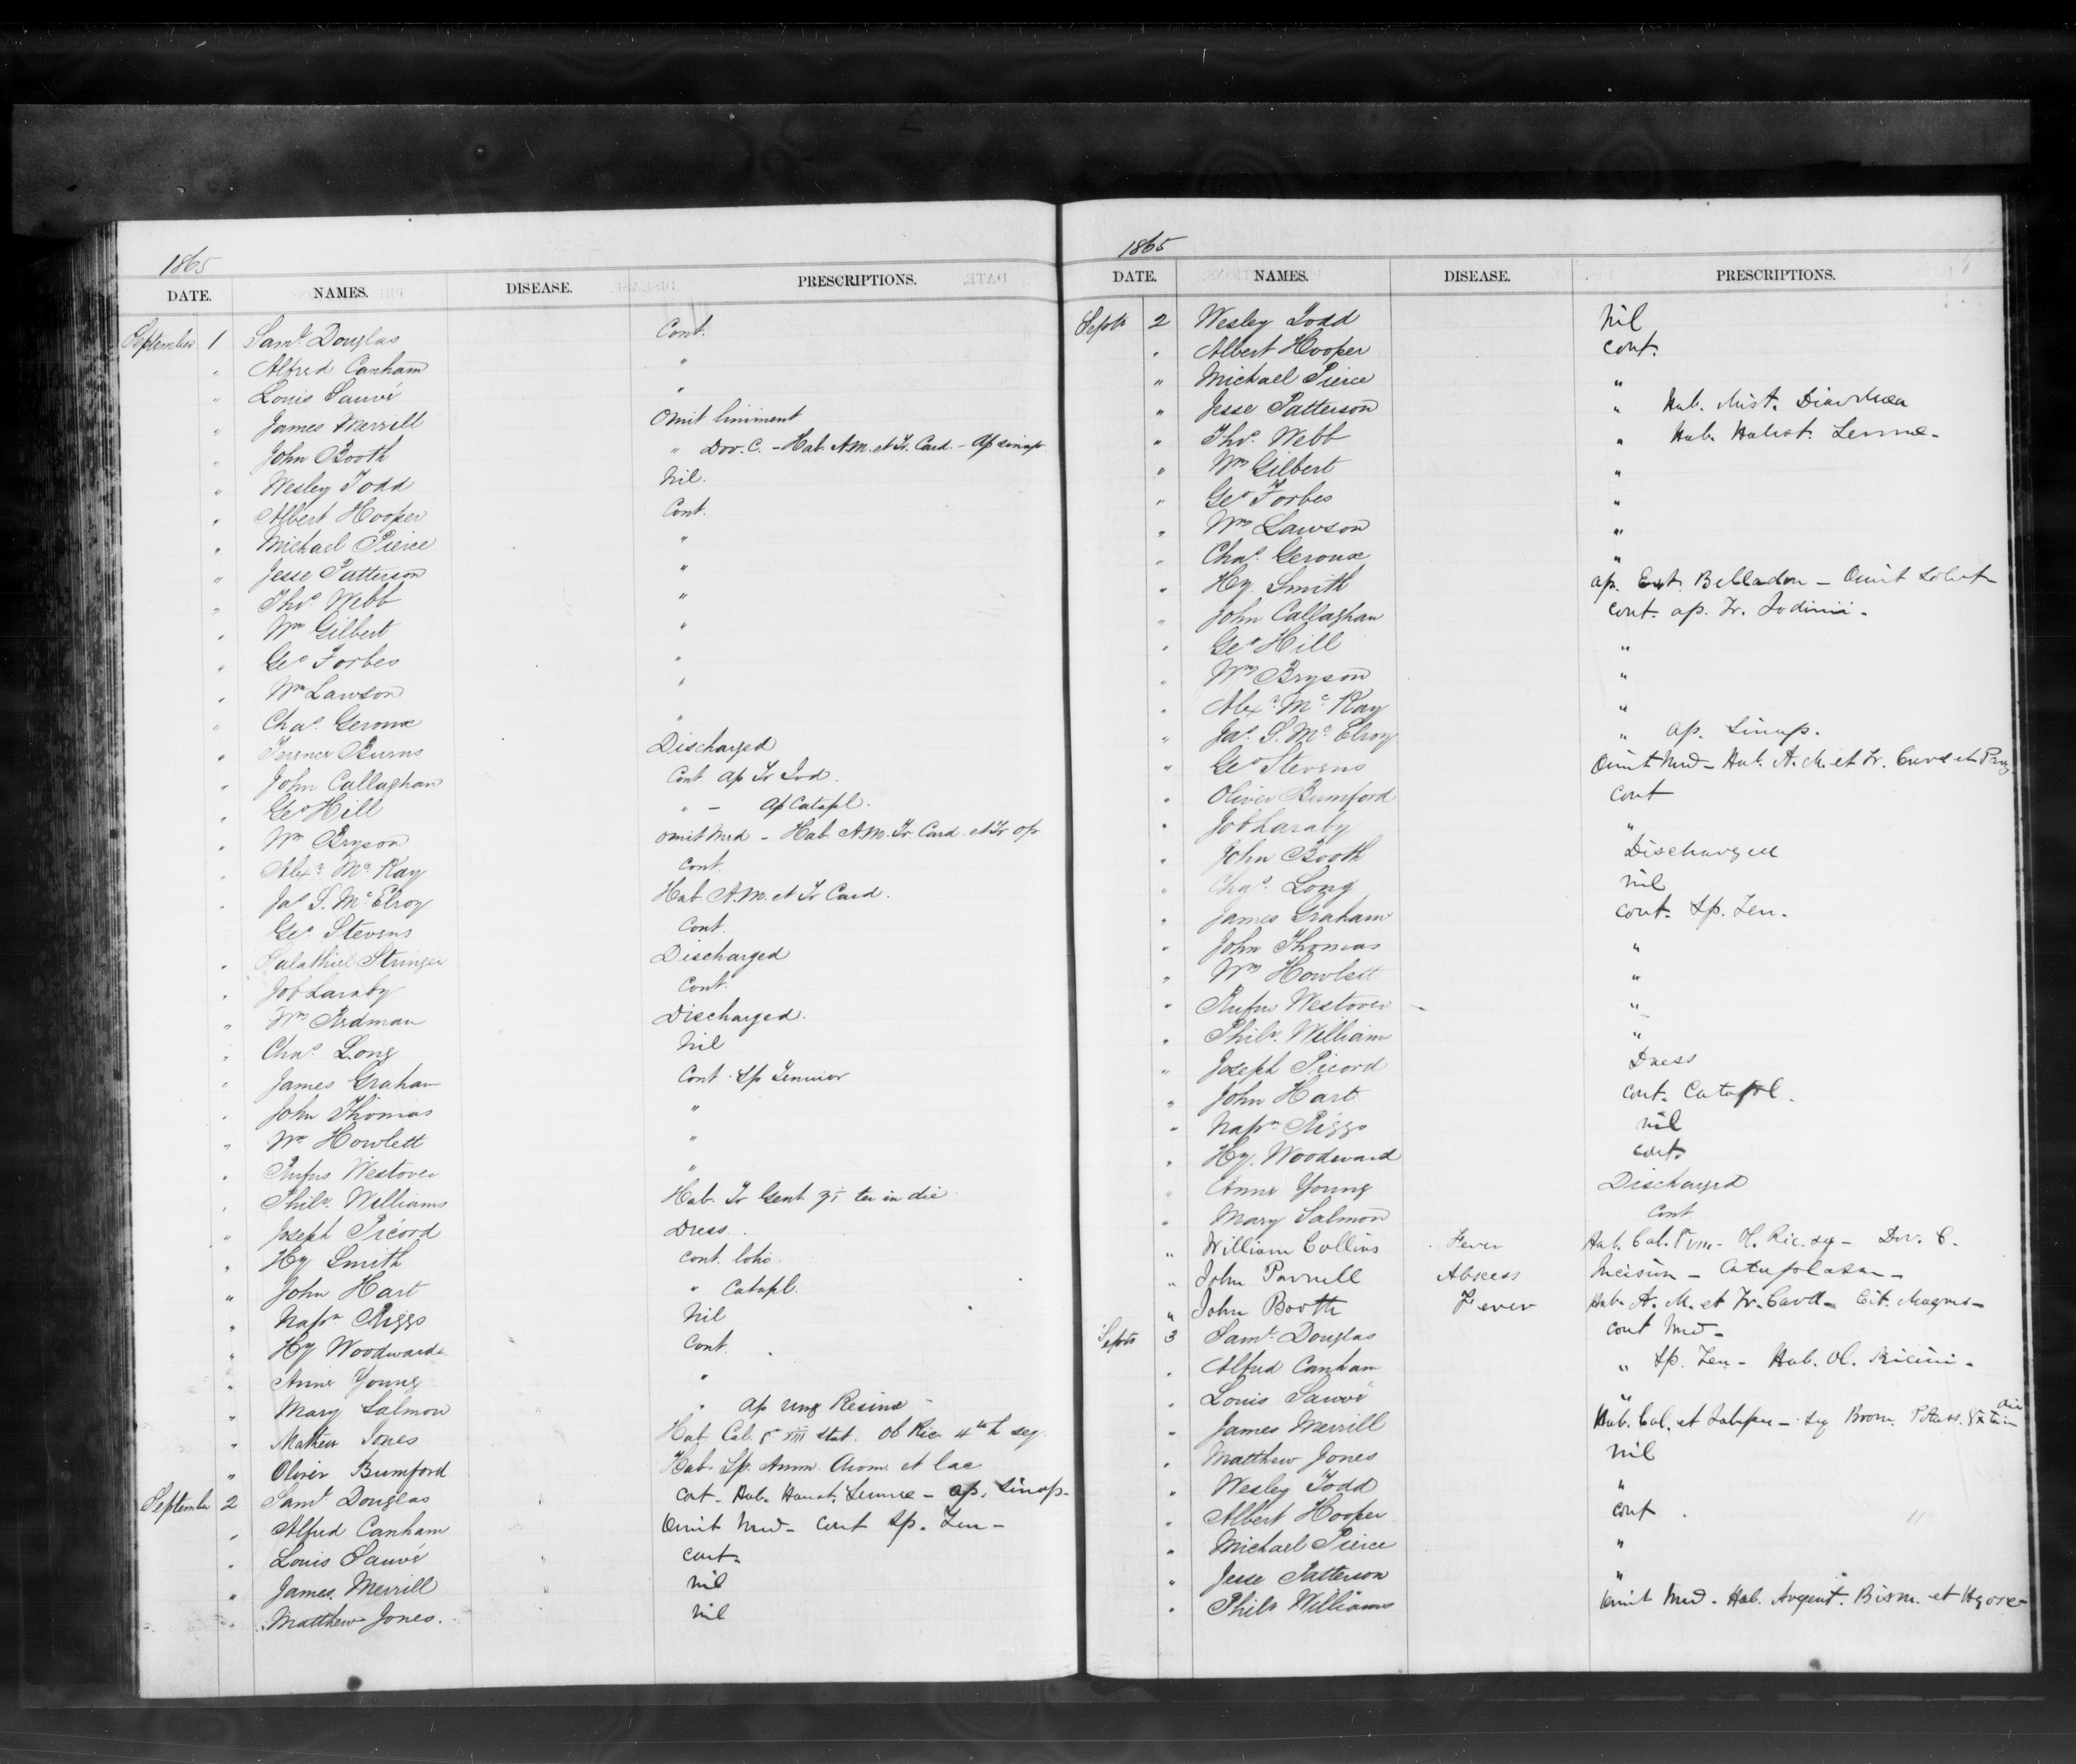 1865
DATE. NAMES. DISEASE. PRESCRIPTIONS.
September 1 Saml Douglas Cont.
" Alfred Canham "
" Louis Sauvé "
" James Merrill Omit liniment
" John Booth " Dov. C. - Hab. A.M. et Tr. Card. - Ap sinap
" Wesley Todd Nil.
" Albert Hooper Cont.
" Michael Pierce "
" Jesse Patterson "
" Thos. Webb "
" Wm Gilbert "
" Geo Forbes "
" Wm Lawson "
" Chas. Geroux "
" Terence Burns Discharged
" John Callaghan Cont ap Tr Iod.
" Geo Hill " - Ap Catapl.
" Wm Bryson omit Med - Hab A.M. Tr Card et Tr op
" Alexr. Mc Kay Cont.
" Jas S. Mc Elroy Hab A.M. et Tr Card.
Geo. Stevens Cont.
" Salathiel Stringer Discharged
" Job Laraby Cont.
" Wm Redman Discharged.
" Chas. Long Nil
" James Graham Cont. Sp Tenuior
" John Thomas "
" Wm Howlett "
" Rufus Westover "
" Philr. Williams Hab. Tr Gent ʒi ter in die
" Joseph Picord Dress.
" Hy Smith cont. lotio
" John Hart " Catapl.
" Napn Riggs Nil
" Hy Woodward Cont.
" Anne Young "
" Mary Salmon " Ap ung Resinae -
" Mathew Jones Hab. Cal. gr viii stat. Ol Ric 4th h seq
" Oliver Bumford Hab. Sp. Amm. Arom. et lac
September 2 Saml. Douglas cont - Hab. Haust. Sennae - ap. Sinap.
" Alfred Canham Omit Med - Cont Sp. Ten -
" Louis Sauvé cont.
" James Merrill Nil
" Matthew Jones. Nil
1865
DATE. NAMES. DISEASE. PRESCRIPTIONS.
Septr 2 Wesley Todd Nil
" Albert Hooper cont.
" Michael Pierce "
" Jesse Patterson " Hab. Mist. Diarrhoea
" Thos. Webb " Hab. Haust. Sennae -
" Wm Gilbert "
" Geo Forbes "
" Wm Lawson "
" Chas. Geroux "
" Hy. Smith ap. Ext. Belladon - Omit Lotio
" John Callaghan cont. ap. Tr. Iodinii -
" Geo Hill "
" Wm Bryson "
" Alexr. Mc Kay "
" Jas. S. Mc Elroy " ap. Sinap.
" Geo Stevens Omit Med - Hab. A.M. et Tr. Card et
" Oliver Bumford Cont
" Job Laraby "
" John Booth Discharged
" Chas. Long nil
" James Graham cont. Sp. Ten.
" John Thomas "
" Wm Howlett "
" Rufus Westover - "
" Philr. Williams "
" Joseph Picord Dress
" John Hart cont. Catapl.
" Napn Riggs nil
" Hy. Woodward cont.
" Anne Young Discharged
" Mary Salmon Cont
" William Collins Fever Hab. Cal. - Ol. Ric. sq - Dov. C.
" John Parnell Abscess Incision - Cataplasm -
" John Booth Fever Hab. A.M. et Tr. Card - Cit. Magnes -
Septr 3 Saml. Douglas cont Med -
" Alfred Canham " Sp. Ten - Hab. Ol. Ricini -
" Louis Sauvé "
" James Merrill Hab. Cal. et Jalapae - Sq Brom. Potass. ter in die
" Matthew Jones nil
" Wesley Todd "
" Albert Hooper cont
" Michael Pierce "
" Jesse Patterson "
" Philr Williams Omit Med - Hab. Argent. Bism. et Hyosc